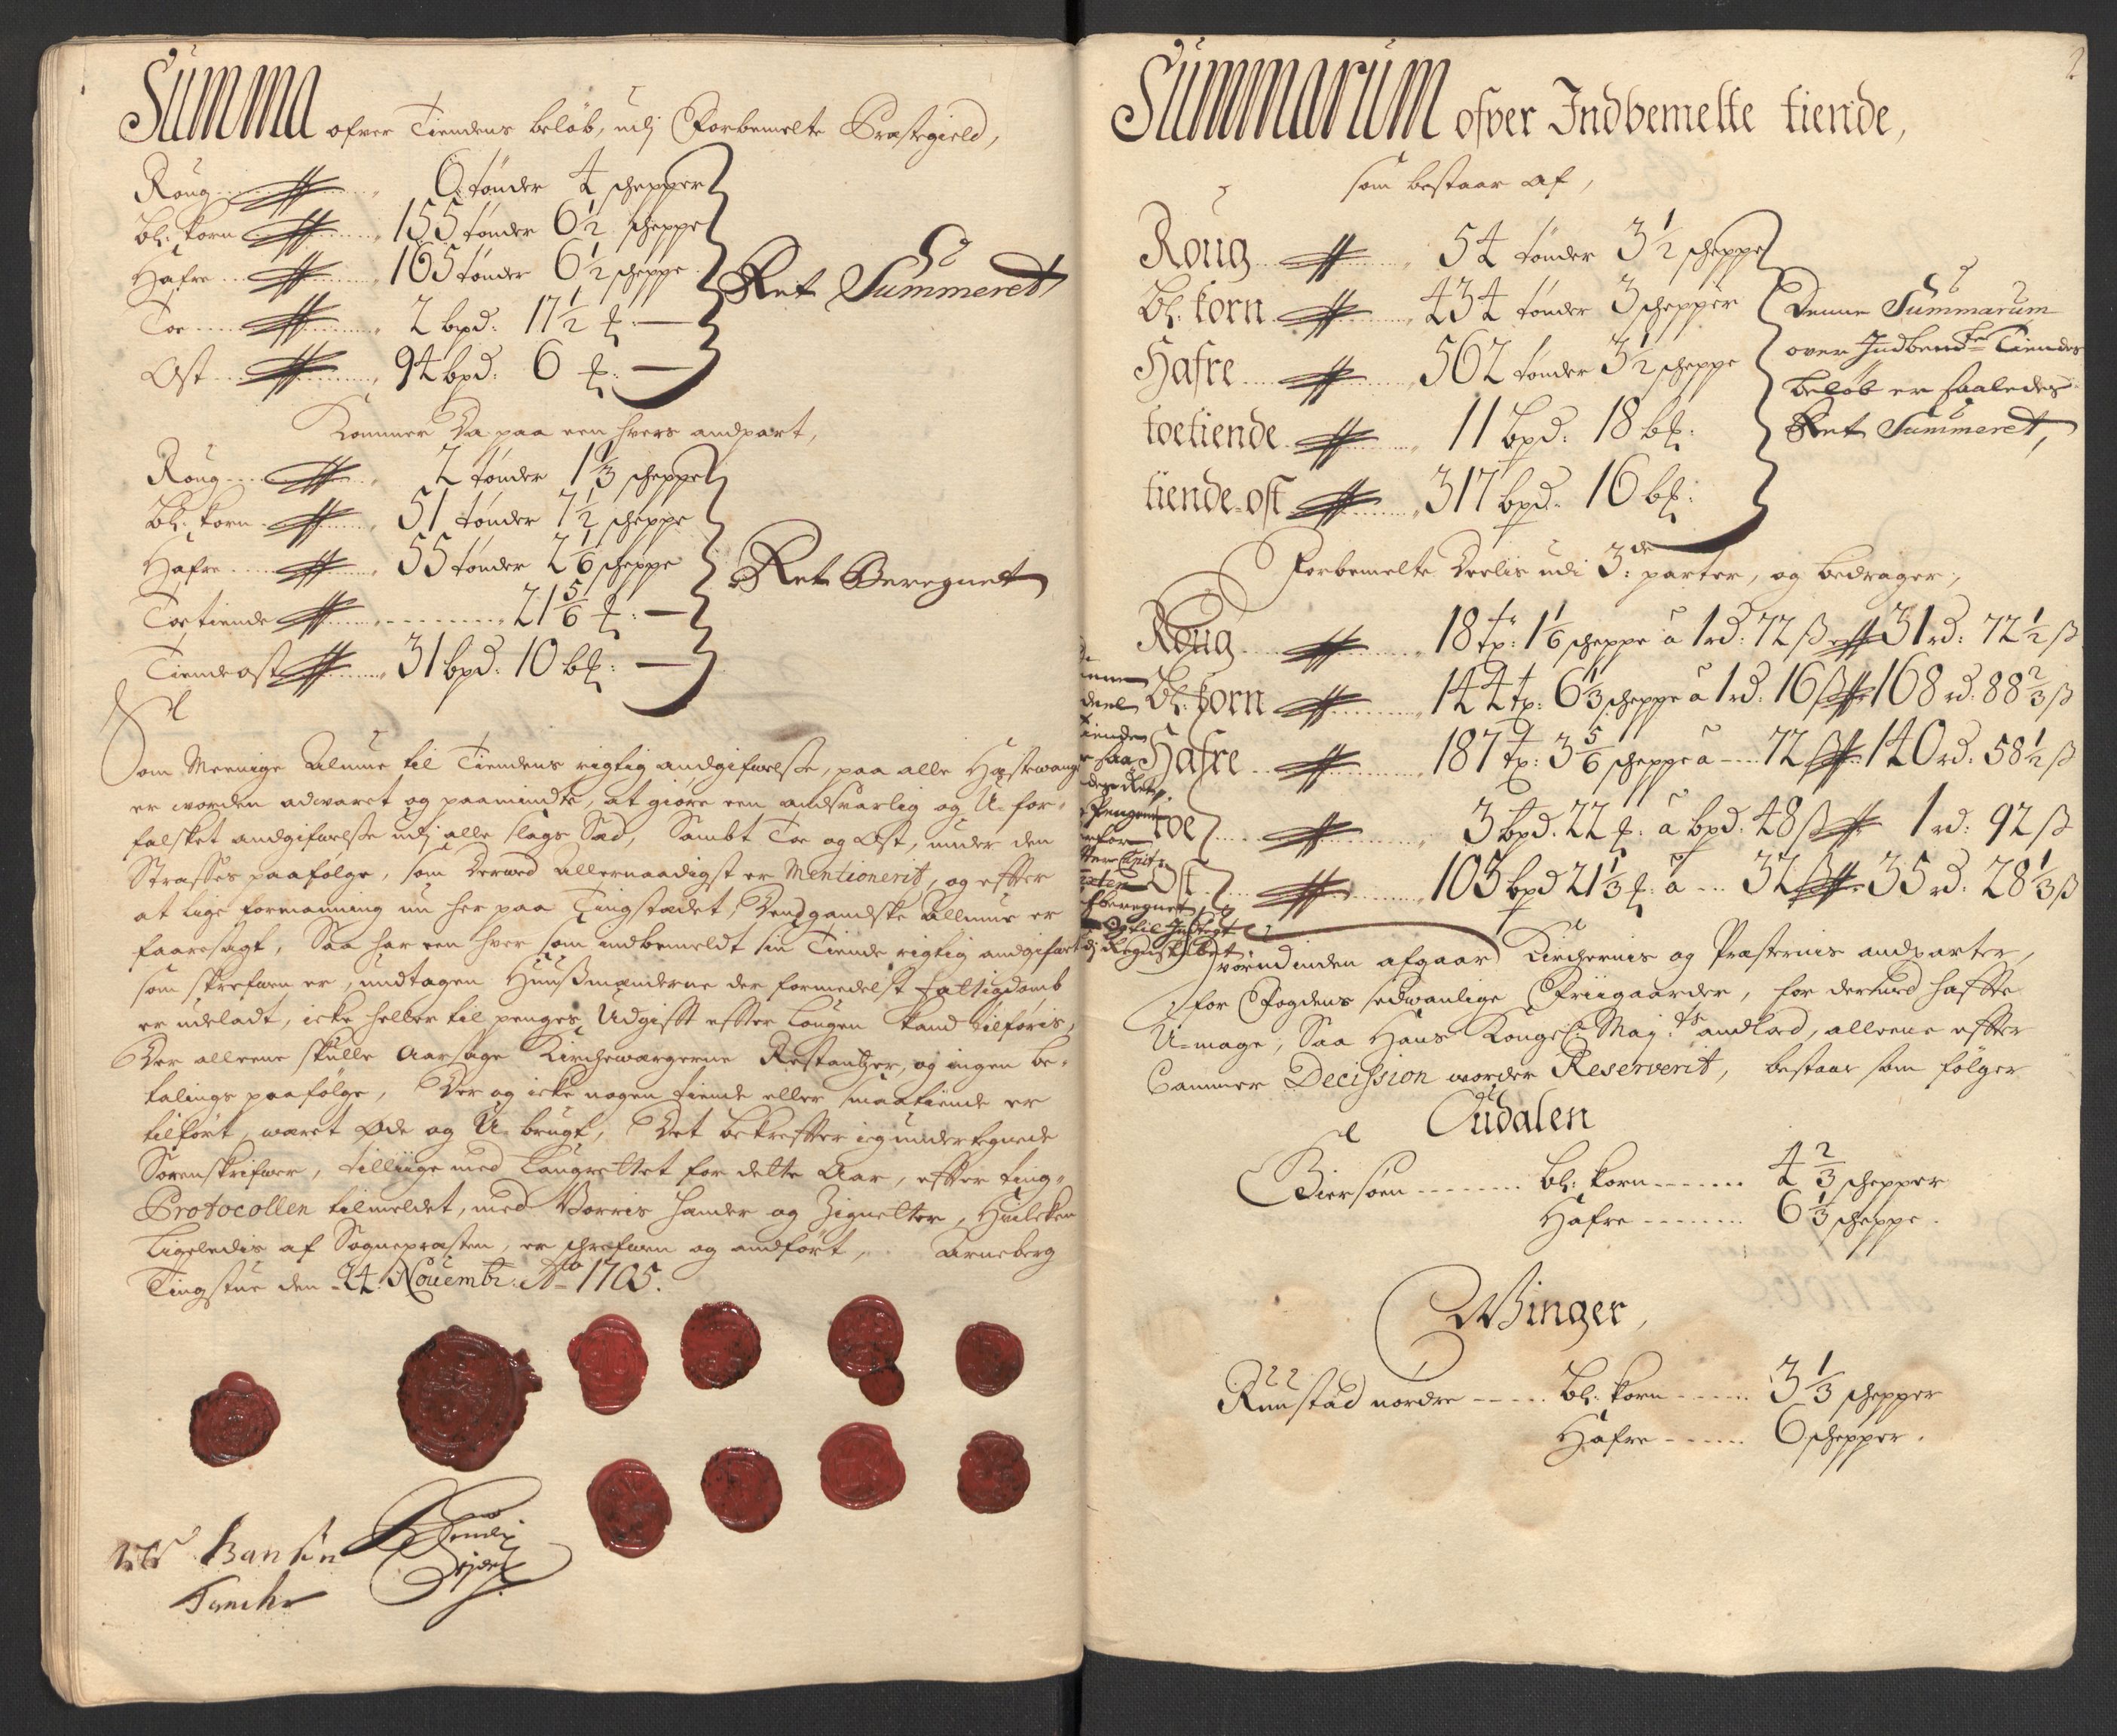 Summa ofver Tiendens beløb, udj Forbemelte Præstegield,
Roug 6 tønder 4 schepper
Bl: korn 155 tønder 6½ scheppe
Hafre 165 tønder 6½ scheppe
Toe 2 bpd: 17½ ℔:
Ost 94 bpd: 6 ℔:
Ret Summeret
Kommer Da paa een hvers andpart,
Roug 2 tønder 1⅓ scheppe
Bl: korn 51 tønder 7½ scheppe
Hafre 55 tønder 2 1/6 scheppe
Toetiende 21 5/6 ℔:
Tiendeost 31 bpd: 10 b℔:
Ret Beregnet
Som Meenige Almue til Tiendens rigtig andgifvelsse, paa alle Høstewange
er worden adwaret og paamindte, at giøre een andsvarlig og U-for-
falsket andgifvelsse udj alle slags Sæd, Sambt Toe og Ost, under den
Straffes paafølge, som Derved allernaadigst er Mentionerit, og effter
at lige formanning nu her paa Tingstædet, Dend gandske Allmue er
faaresagt, Saa har een hver som indbemeldt sin Tiende rigtig andgifvet
som skrefven er, undtagen Huusmænderne der formedelst fattigdomb
er udeladt, icke heller til penges Udgifft effter Lougen kand tilføris,
Der alleene skulle Aarsage Kirchewærgerne Restantzer, og ingen be-
talings paafølge, Der og icke nogen tiende eller smaatiende er
tilført, wæret Øde og U-brugt, Det bekreffter ieg undertegnede
Sorenskrifver, tilliige med Laugrettet for dette Aar, effter ting-
Protocollen tilmeldet, med Worris hænder og Zignetter, Huilcken
Ligeledis af Sognepræsten, er schrefven og andført, Arneberg
Tingstue den 24 Novembr: Ao 1705.
Summarum ofver Indbemelte tiende,
som bestaar af,
Roug 54 tønder 3½ scheppe
Bl: korn 434 tønder 3 schepper
Hafre 562 tønder 3½ scheppe
toetiende 11 bpd: 18 b℔:
tiende-ost 317 bpd: 16 b℔:
Denne Summarum
over Indbemte Tiendes
beløb er saaledes
Ret Summeret,
Forbemelte Deelis udi 3de parter, og bedrager,
Roug 18 tr: 1 1/6 scheppe à 1 rd: 72 ß 31 rd: 72½ ß
Bl: korn 144 tr: 6⅓ scheppe à 1 rd: 16 ß 168 rd: 88⅔ ß
Hafre 187 tr: 3 5/6 scheppe à 72 ß 140 rd: 58½ ß
toe 3 bpd: 22 ℔: à bpd: 48 ß 1 rd: 92 ß
Ost 105 bpd 21⅓ ℔: à 32 ß 35 rd: 28⅓ ß
Hvorudinden afgaar Kirchernis og Præsternis andparter,
for Fogdens sedwanlige Friigaarder, for derved haffte
U-mage, Saa Hans Kongel: Maj:ts andled, alleene effter
Cammer Decission worder Reserverit, bestaar som følger
Oudalen
Biersøen Bl: korn 4⅔ schepper
Hafre 6⅓ scheppe.
Winger,
Ruustad nordre Bl: korn 3⅓ schepper
Hafre 6 schepper.